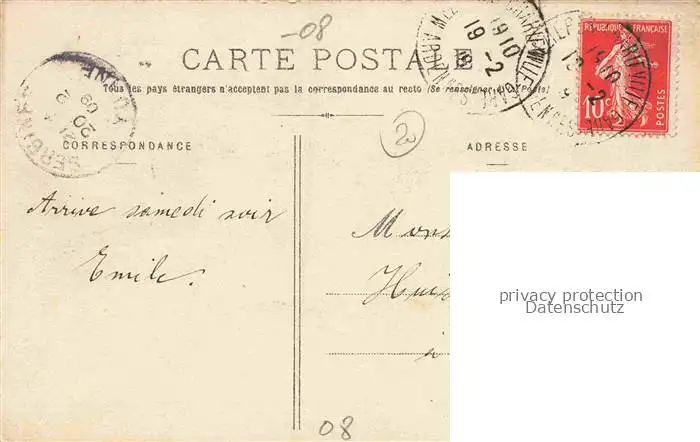 -08
CARTE POSTALE
Tous les pays étrangers n'acceptent pas la correspondance au recto (Se renseigner à la Poste)
RÉPUBLIQUE FRANÇAISE
10c
POSTES
19 -2
1910
20 2
09
2
CORRESPONDANCE
ADRESSE
Arrive samedi soir
Emile.
Mons
Huis
à
privacy protection
Datenschutz
08